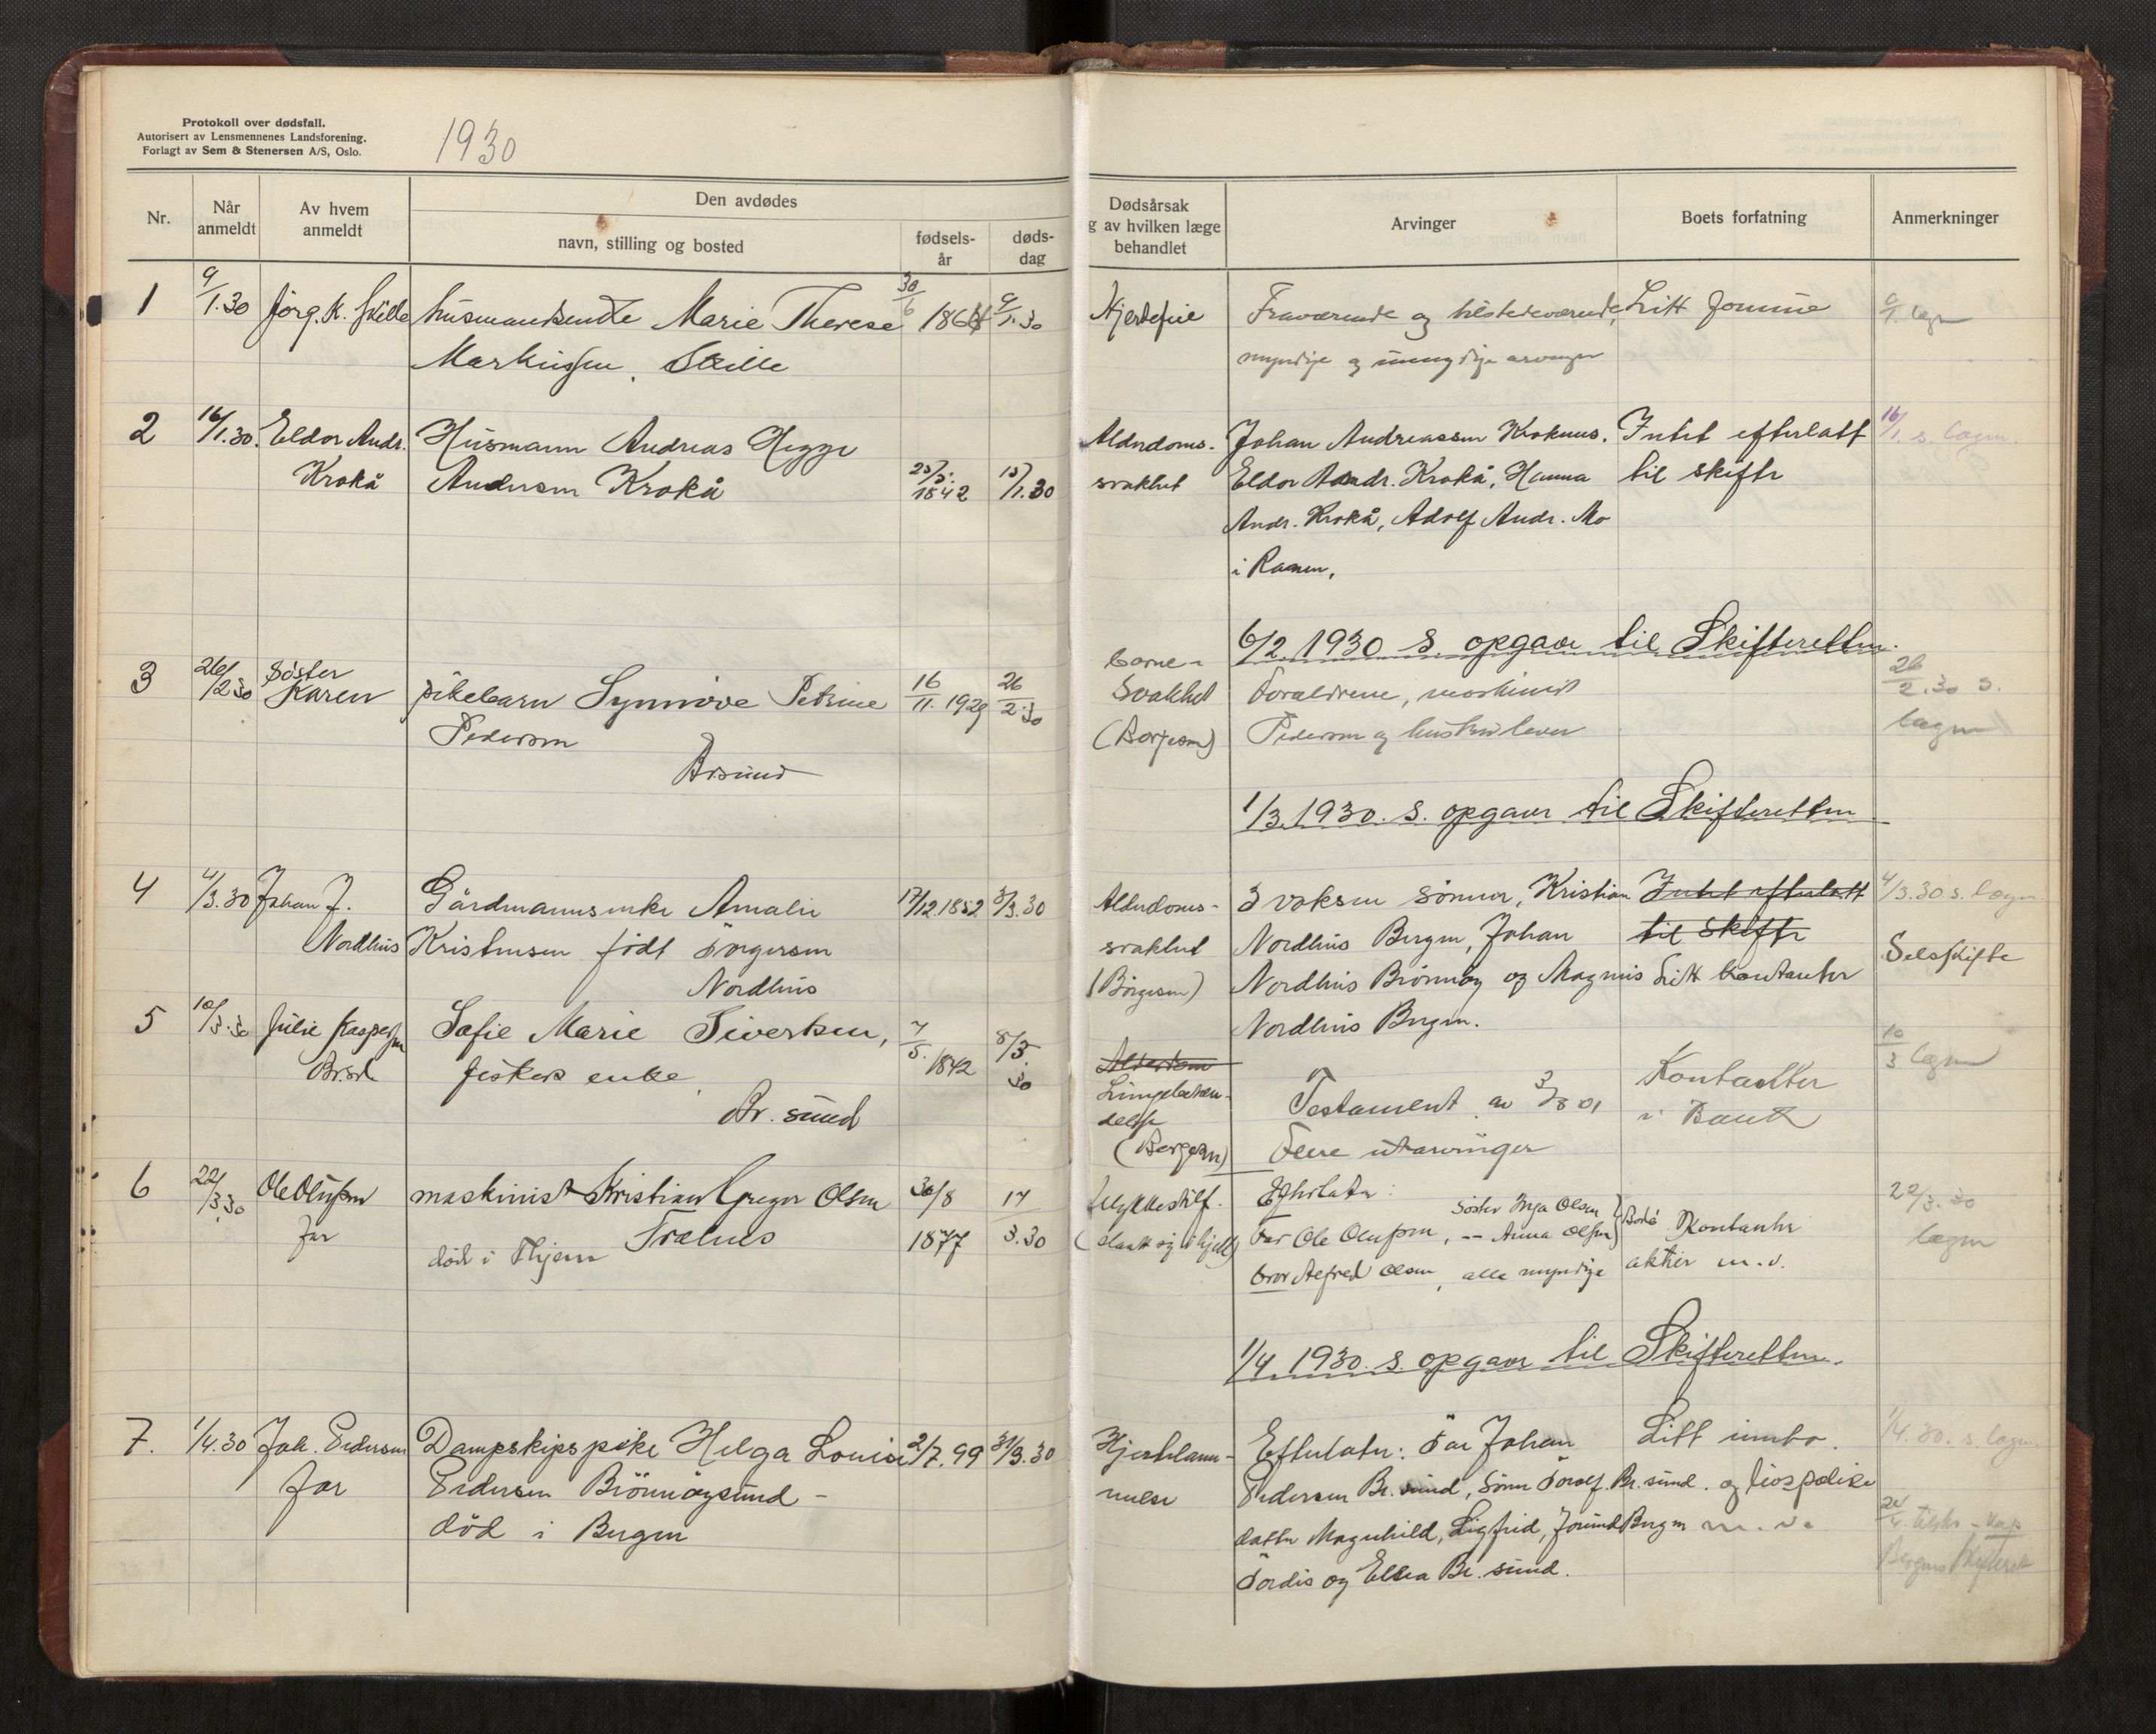 Protokoll over dødsfall.
Autorisert av Lensmennenes Landsforening.
Forlagt av Sem & Stenersen A/S, Oslo.
1930
Nr.
Når anmeldt
Av hvem anmeldt
Den avdødes
navn, stilling og bosted
fødsels-år
døds-dag
Dødsårsak
g av hvilken læge
behandlet
Arvinger
Boets forfatning
Anmerkninger
1
9/1.30
Jørg. K. Skille
Marie Therese
30/6
9/1.30
Markussen, Skille
Hjertefeil
Fraværende og tilstedeværende,
myndige og umyndige arvinger
Litt
9/1.
2
16/1.30.
Eldor Andr.
Krokå
Husmann Andreas Hegge
Andersen Krokå
25/5. 1842
15/1.30
Alderdoms-
svakhet
Johan Andreassen Kroknes.
Eldor Andr. Krokå, Hanna
Andr. Krokå, Adolf Andr. Mo
i Ranen,
Intet efterlatt
til skifte
16/1. s. lagm.
6/2 1930 S. opgave til Skifteretten.
3
26/2 30
Søster
Karen
pikebarn Synnøve Petrine
Pedersen
Br.sund
16/11. 1929
26/2.30
barne-
svakhet
Foreldrene, maskinist
Pedersen og hustru lever
26/2.30 S.
lagm
1/3.1930. S. opgave til Skifteretten
4
4/3.30
Johan J.
Nordhus
Gårdmannsenke Amalie
Kristensen født Torgersen
Nordhus
17/12 1852
3/3.30
Alderdoms-
svakhet
3 voksne sønner, Kristian
Nordhus Bergen, Johan
Nordhus Brønnøy og Magnus
Nordhus Bergen.
Intet efterlatt
til skifte
Litt kontanter
4/3.30 s. lagm.
Selvskifte
5
10/3.30
Julie Kaspersen
Br.sd
Sofie Marie Sivertsen,
fiskers enke
Br. sund
7/5. 1842
8/3. 30
Alderdom
Lungebeten-
delse
Testament av 3/8 01
Flere utarvinger
Kontanter
i Bank
10/3 lagm
6
22/3 30
Ole Olufsen
far
maskinist Kristian Greger Olsen
død i Trælnes
30/8
1877
17/3.30
Ulykkestilf.
(slaatt sig ihjel)
Efterlater:
Far Ole Olufsen,
søster Inga Olsen
-- Anna Olsen } Bodø
bror Alfred Olsen, alle myndige
Kontanter
aktier m.v.
22/3.30
lagm
1/4 1930. S. opgave til Skifteretten.
7.
1/4.30
Joh. Pedersen
far
Dampskipspike Helga Louise
Pedersen Brönnöysund -
död i Bergen
2/7.99
31/3.30
Hjertelam-
melse
Efterlater: Far Johan
Pedersen Br. sund, Sønn Torolf. Br. sund.
datter Magnhild, Sigfrid, Jorund Bergen
Tordis og Ella Br. sund.
Litt innbo.
og livspolise
m. v.
1/4.30. s. lagm.
Bergens Skifterett